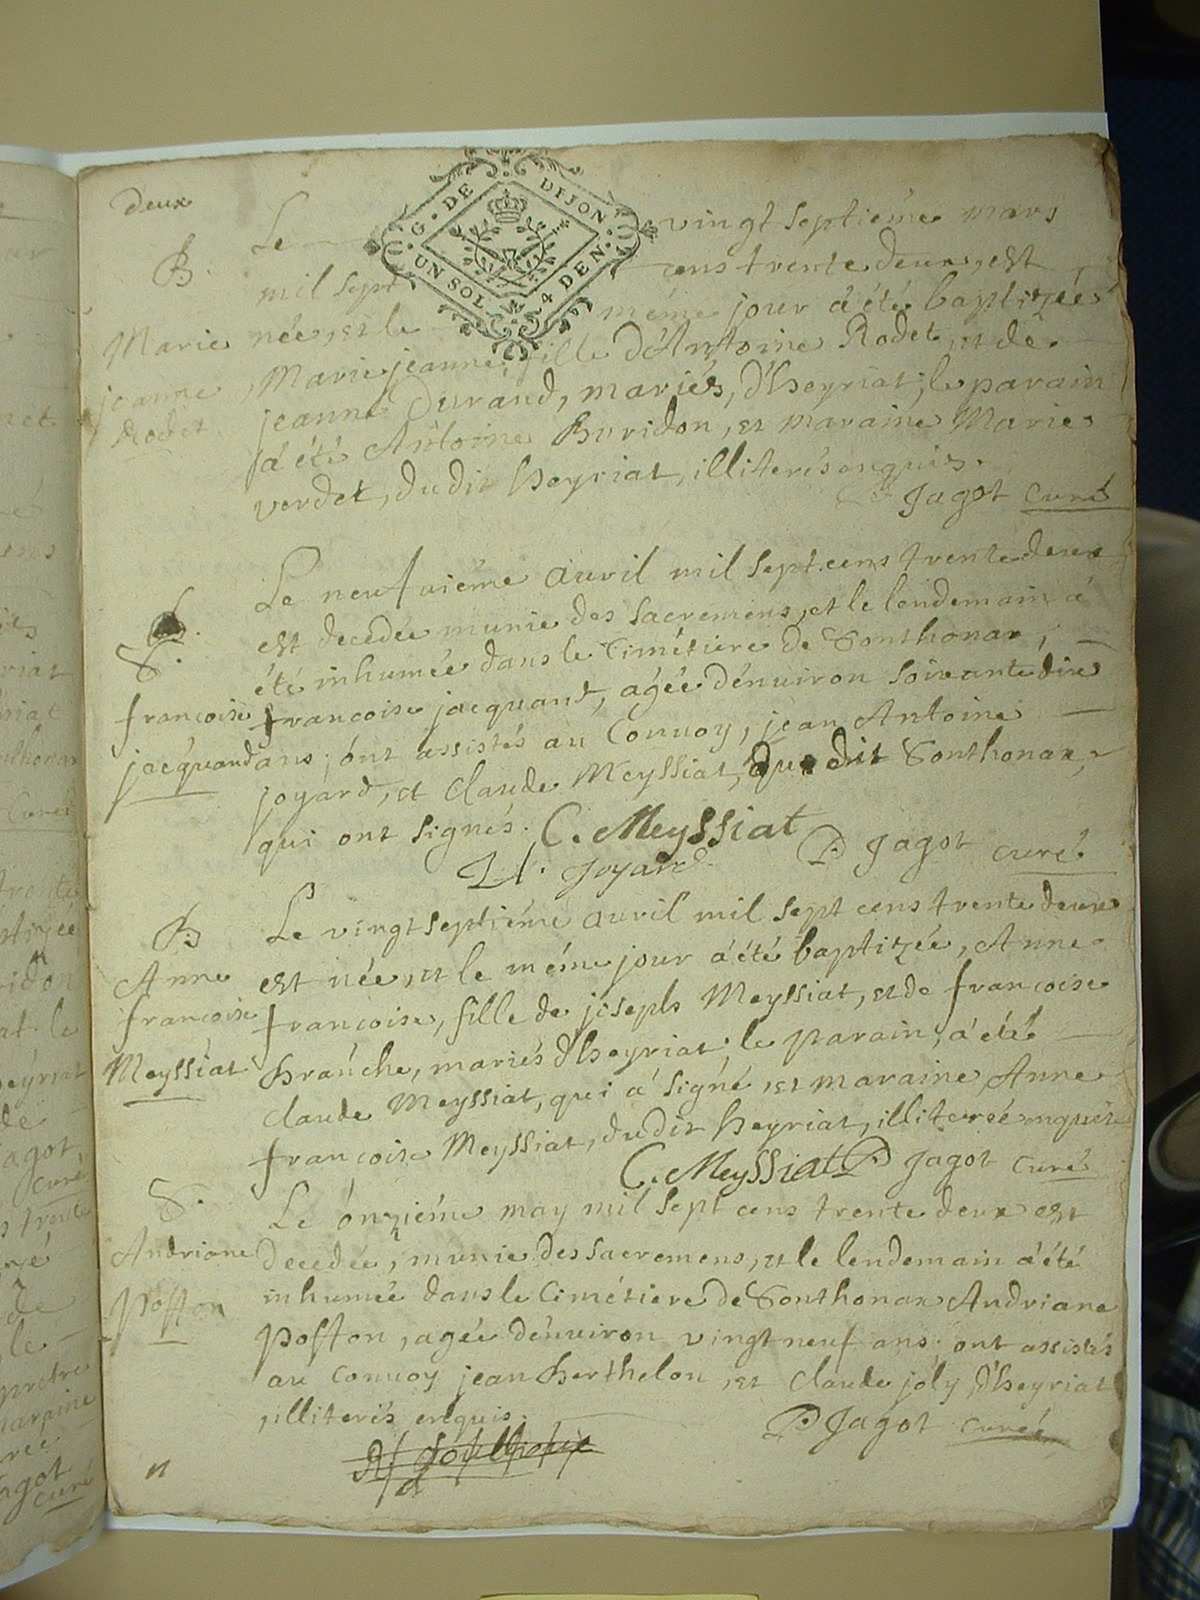 deux
G. DE DIJON
UN SOL 4 DEN
B.
Marie
jeanne
Rodet
Le vingt septiéme mars
mil sept cens trente deux, est
née, et le méme jour á été baptizée
Marie jeanne, fille d'Antoine Rodet, et de
jeanne Durand, mariés, d'heyriat; le parain
á été Antoine Buridon, et maraine Marie
verdet, dudit heyriat, illiterés enquis.
P Jagot curé
S.
francoise
jacquand
Le neufvieme avril mil sept cens trente deux
est decedée munie des sacremens, et le lendemain á
été inhumée dans le cimétiere de Sonthonax,
francoise jacquand, agée d'énviron soixante dix
ans; ónt assistés au Convoy, jean Antoine
joyard, et claude Meyssiat, dudit Sonthonax,
qui ont signés. C. Meyssiat
Joyard P Jagot curé
B
Anne
francoise
Meyssiat
Le vingt septiéme avril mil sept cens trente deux
est née, et le méme jour á été baptizée, Anne
francoise, fille de joseph Meyssiat, et de francoise
Branche, mariés d'heyriat; le parain, á été
claude Meyssiat, qui á signé, et maraine Anne
francoise Meyssiat, dudit heyriat, illiterée enquise
C. Meyssiat P Jagot curé
S.
Andriane
Poffon
Le ónziéme may mil sept cens trente deux est
decedée, munie des sacremens, et le lendemain á été
inhumée dans le cimétiere de Sonthonax Andriane
Poffon, agée d'énviron vingt neuf ans; ont assistés
au convoy jean Berthelon, et claude joly, d'heyriat
illiterés enquis.
P Jagot curé